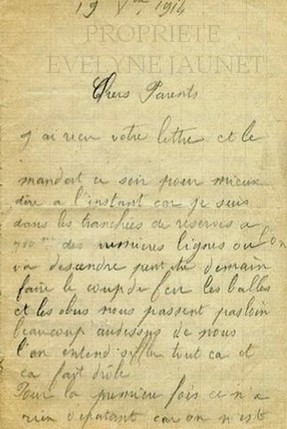 19 Vbre 1914
PROPRIETE
EVELYNE JAUNET
Chers Parents
J ai recu votre lettre et le
mandat ce soir pour mieux
dire a l'instant car je suis
dans les tranchées de reserves a
700 m des premieres lignes ou l'on
va descendre peut etre demain
faire le coup de feu les balles
et les obus nous passent pas loin
beaucoup audessus de nous
l'on entend siffler tout ca et
ca fait drôle
Pour la premiere fois ce n'a
rien d epatant car on n'est